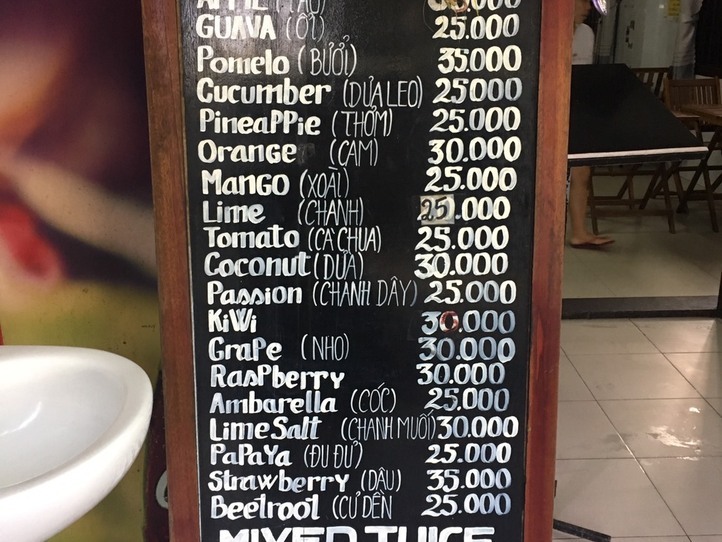 APPLE (TÁO)
GUAVA (ỔI) 25.000
Pomelo (BƯỞI) 35.000
Cucumber (DƯA LEO) 25000
PineaPPie (THƠM) 25.000
Orange (CAM) 30.000
Mango (XOÀI) 25.000
Lime (CHANH) 25.000
Tomato (CÀ CHUA) 25.000
Coconut (DỪA) 30.000
Passion (CHANH DÂY) 25.000
KiWi 30.000
GraPe (NHO) 30.000
RasPberry 30.000
Ambarella (CÓC) 25.000
Lime Salt (CHANH MUỐI) 30.000
PaPaYa (ĐU ĐỦ) 25.000
Strawberry (DÂU) 35.000
Beetroot (CỦ DỀN 25.000
MIXED JUICE